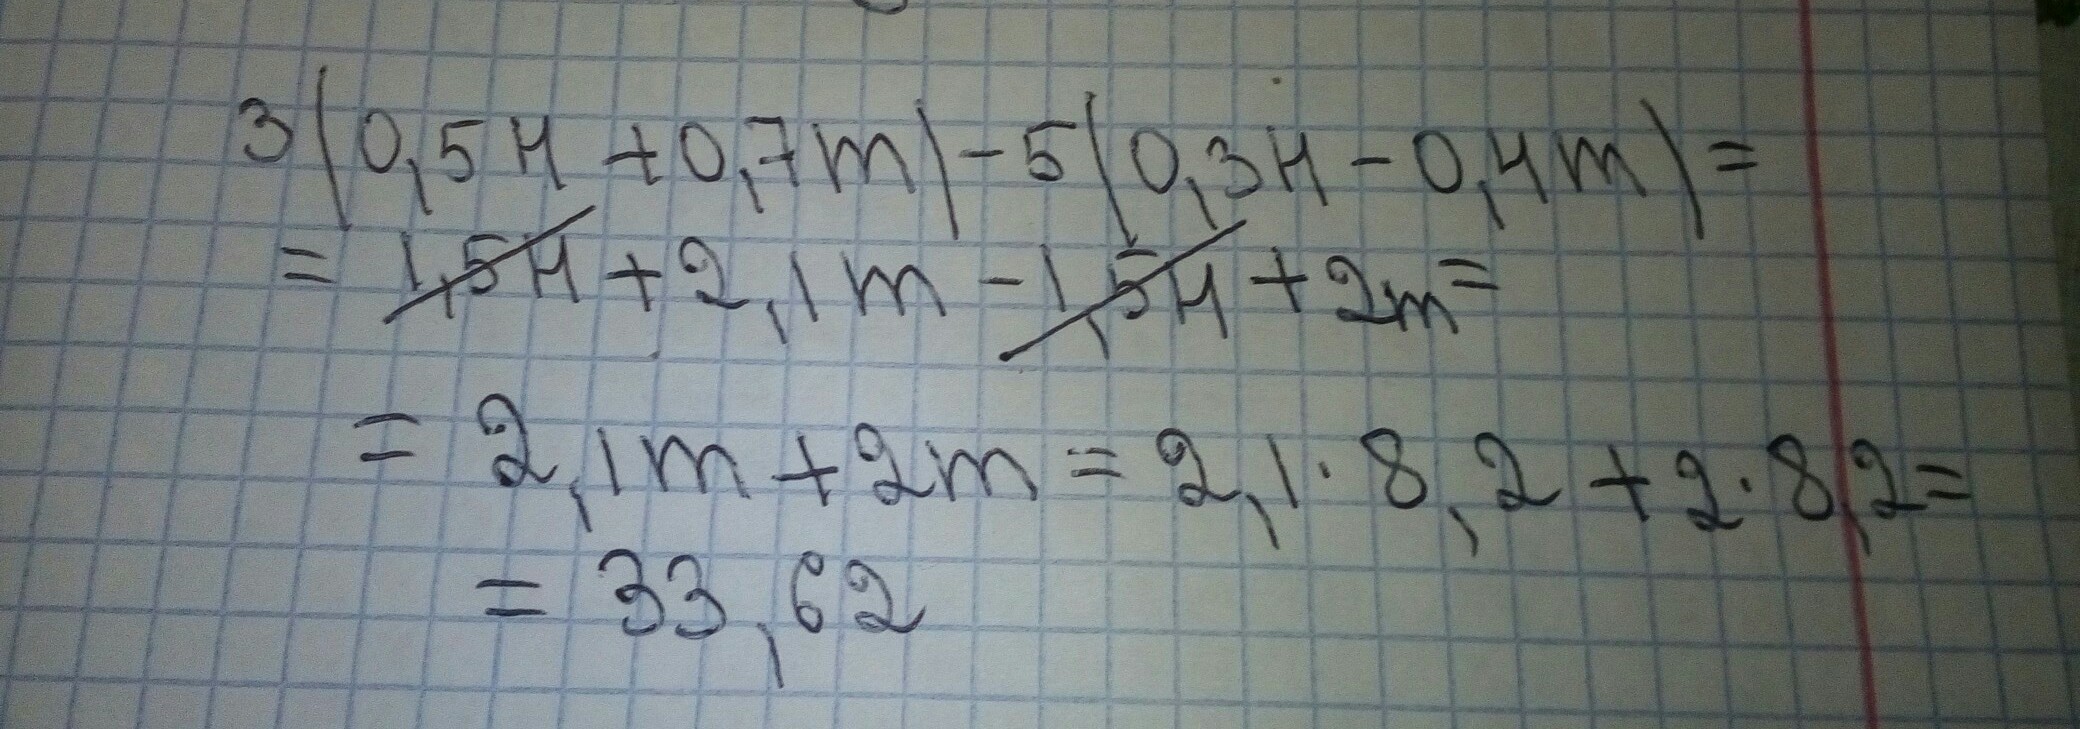 3(0,5н+0,7m)-5(0,3н-0,4m)=
=1,5н+2,1m-1,5н+2m=
=2,1m+2m=2,1·8,2+2·8,2=
=33,62